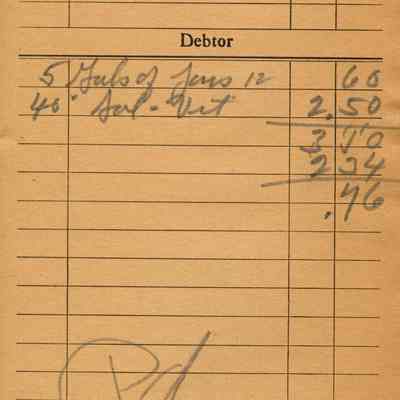 Debtor
5 Gals of 12 60
40 Sal-Vet 2.50
3 10
2 34
.76
Pd